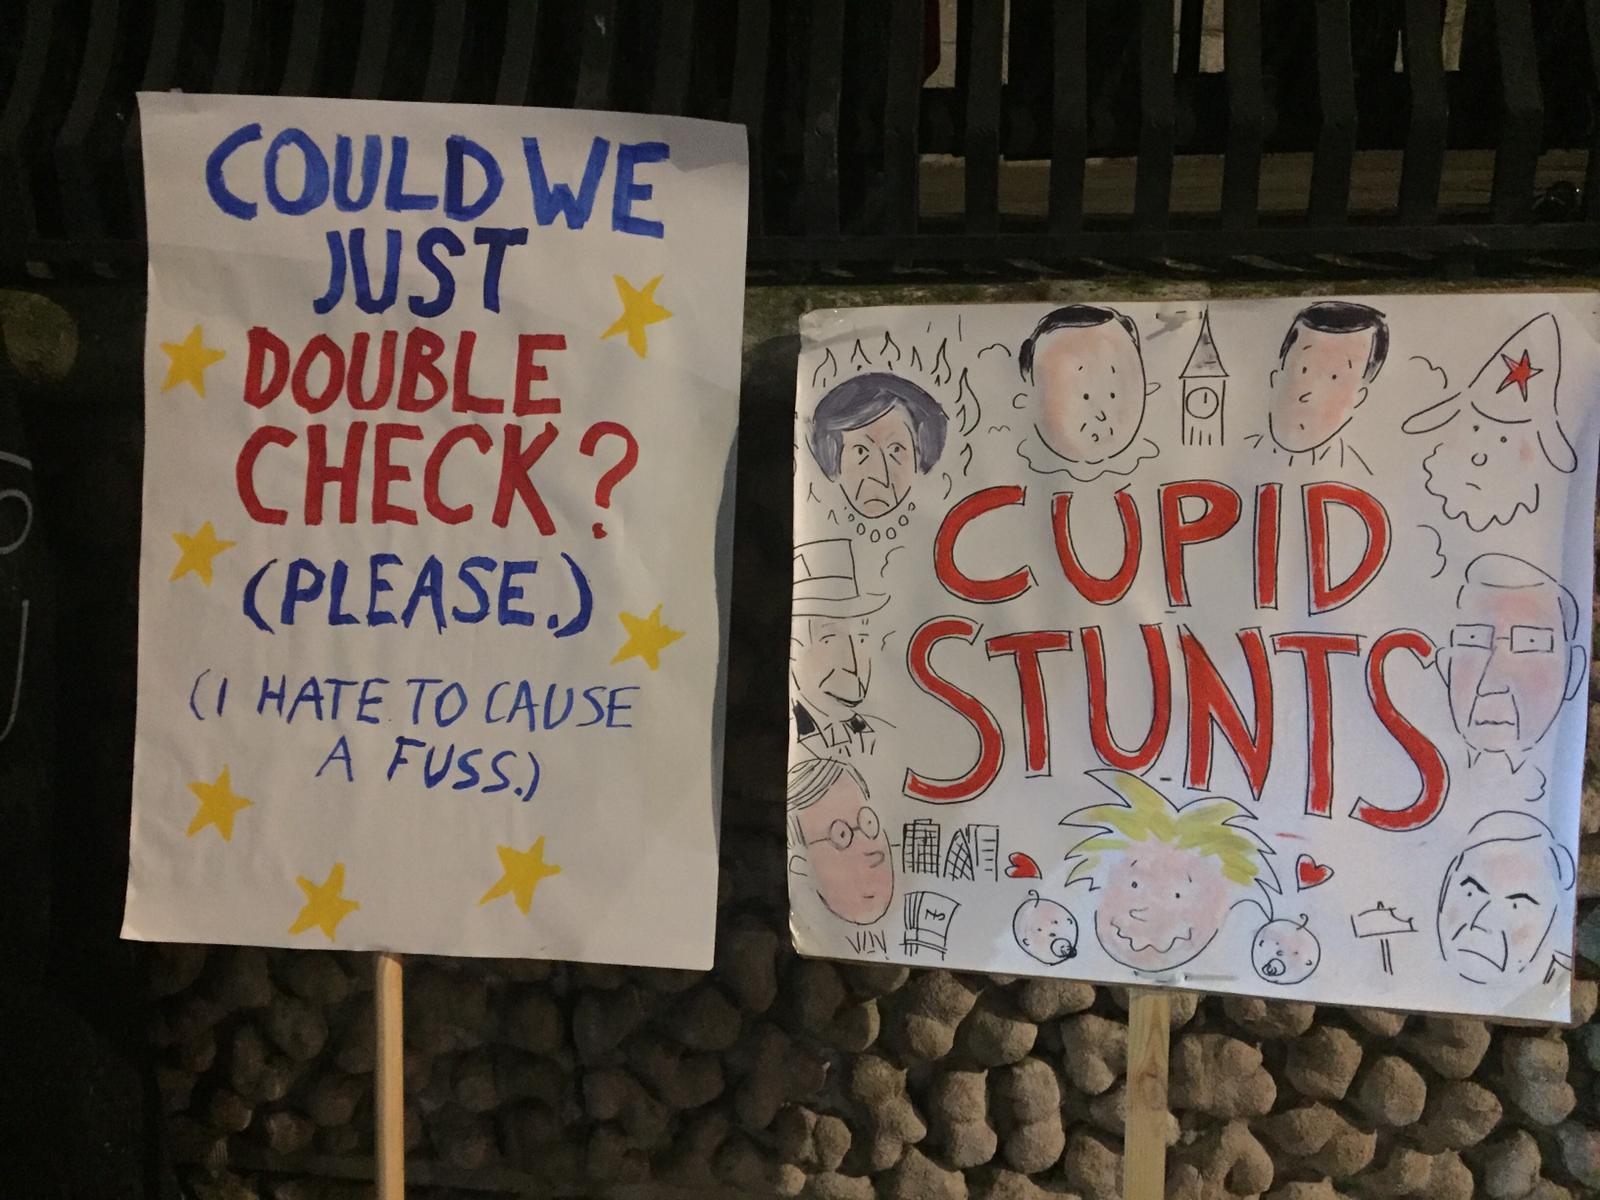 COULD WE
JUST
DOUBLE
CHECK?
(PLEASE.)
(I HATE TO CAUSE
A FUSS.)
CUPID
STUNTS